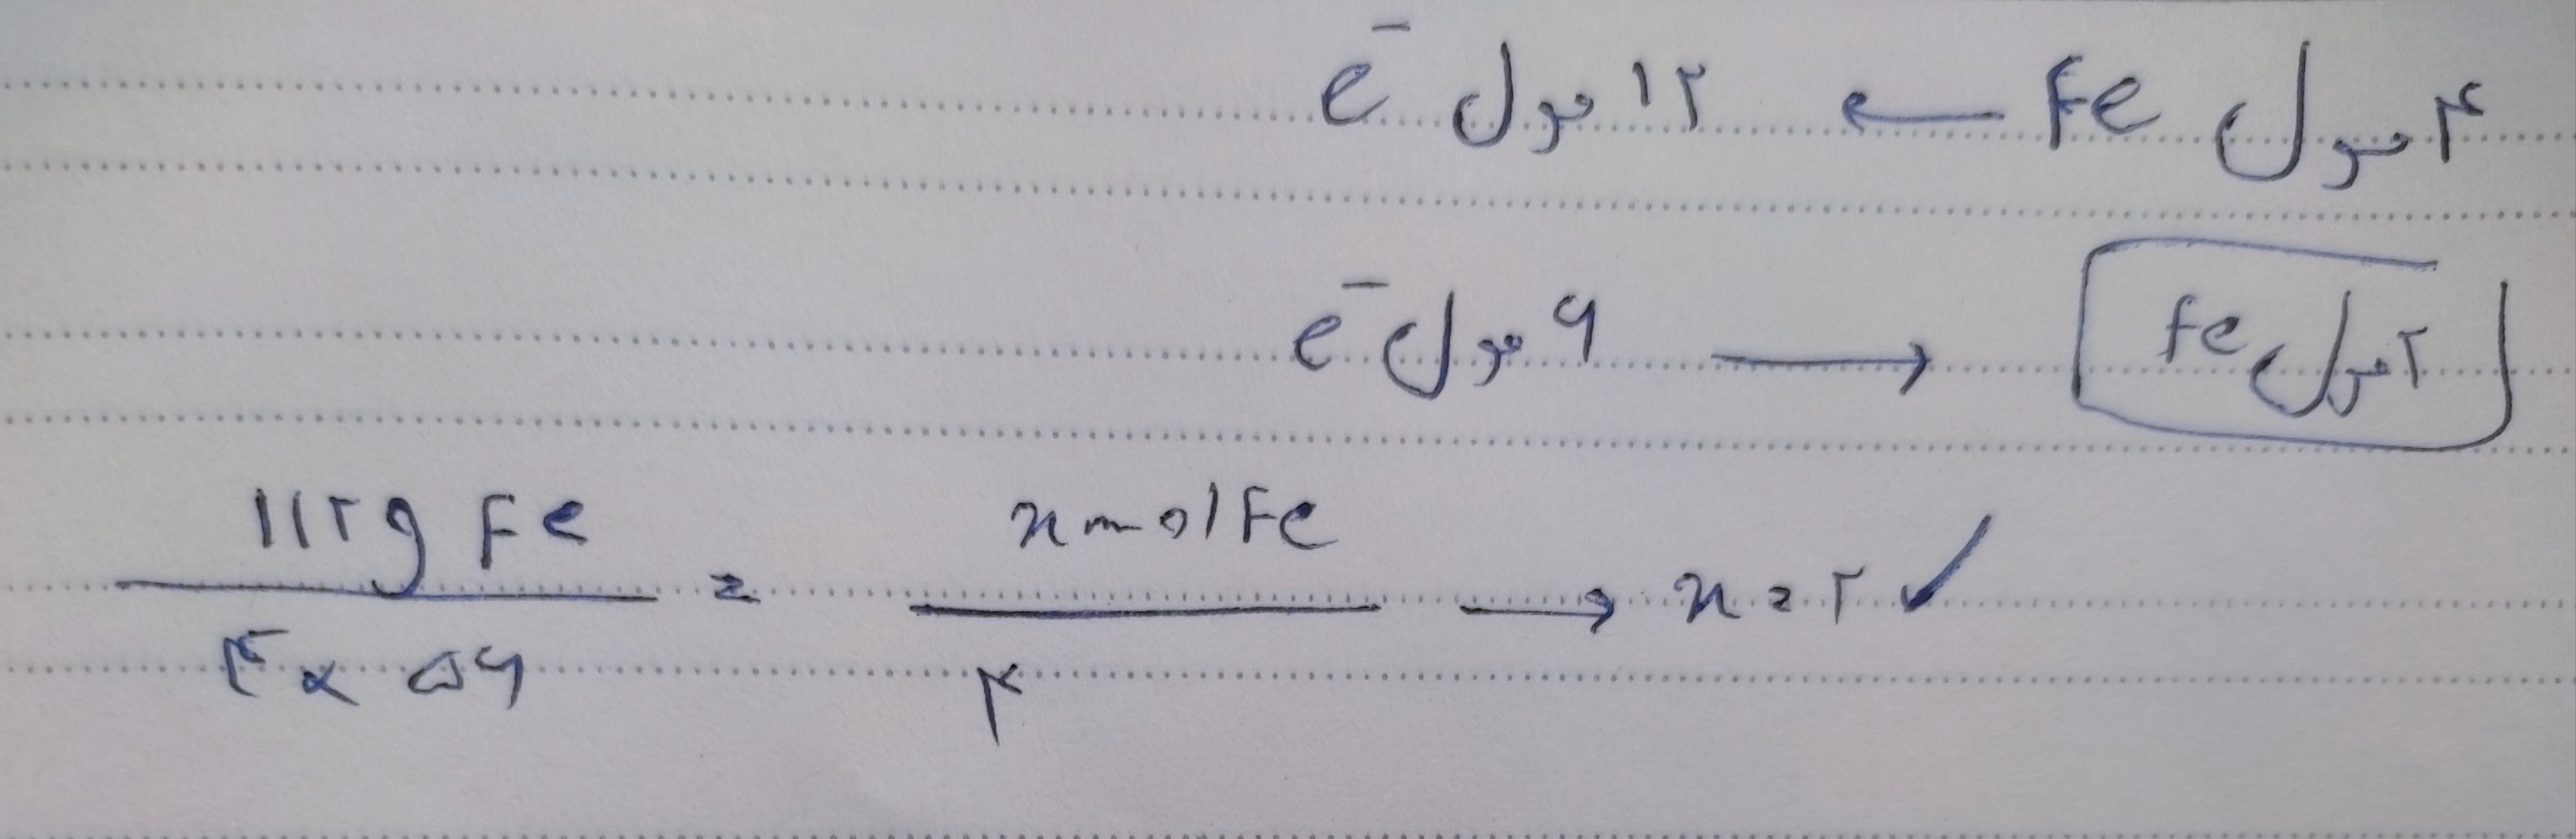 ۴ مول Fe ← ۱۲ مول e⁻
۲ مول Fe ← ۶ مول e⁻
۱۱۲g Fe / ۴ × ۵۶ = x mol Fe / ۴ → x = ۲ ✓